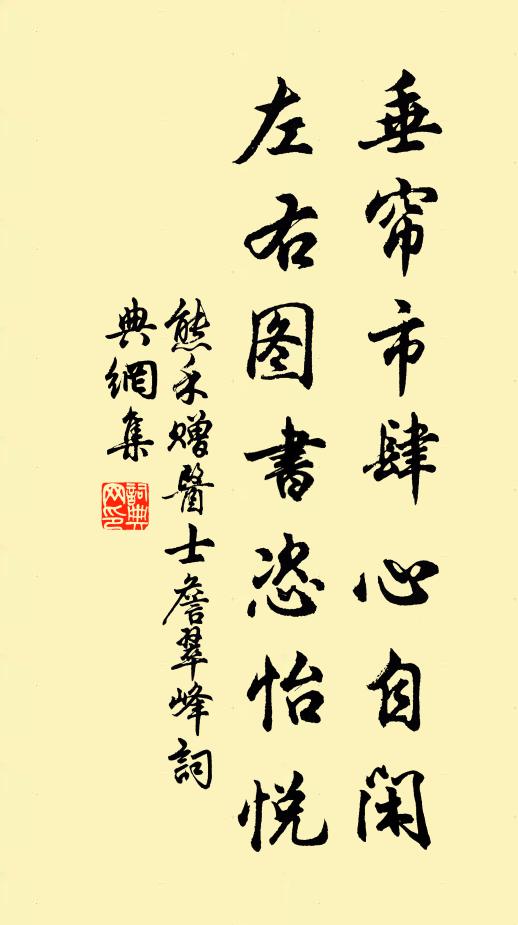 垂帘市肆心自闲
左右图书恣怡悦
熊禾赠醫士詹翠峰詞
典網集
詞典
网印